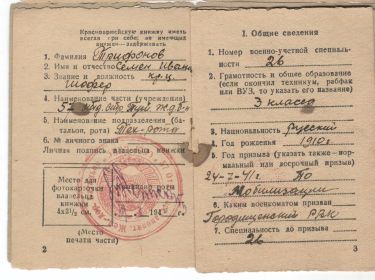 Красноармейскую книжку иметь
всегда при себе. Не имеющих
книжек—задерживать
1. Фамилия Трифонов
2. Имя и отчество Семен Иван
3. Звание и должность кр-ц
Шофер
4. Наименование части (учреждения)
5. Наименование подразделения (батальон, рота) Тех-рота
6. № личного знака
Личная подпись владельца книжки
Место для
фотокарточки
владельца
книжки
4×3½ см.
194
(Место
печати части)
2
I. Общие сведения
1. Номер военно-учетной специальности 26
2. Грамотность и общее образование
(если окончил техникум, рабфак
или ВУЗ, то указать его название)
3 класса
3. Национальность русский
4. Год рожденья 1910 г
5. Год призыва (указать также—нормальный или досрочный призыв)
24-7-41г. По
мобилизации
6. Каким военкоматом призван
Городищенский РВК
7. Специальность до призыва
26
3